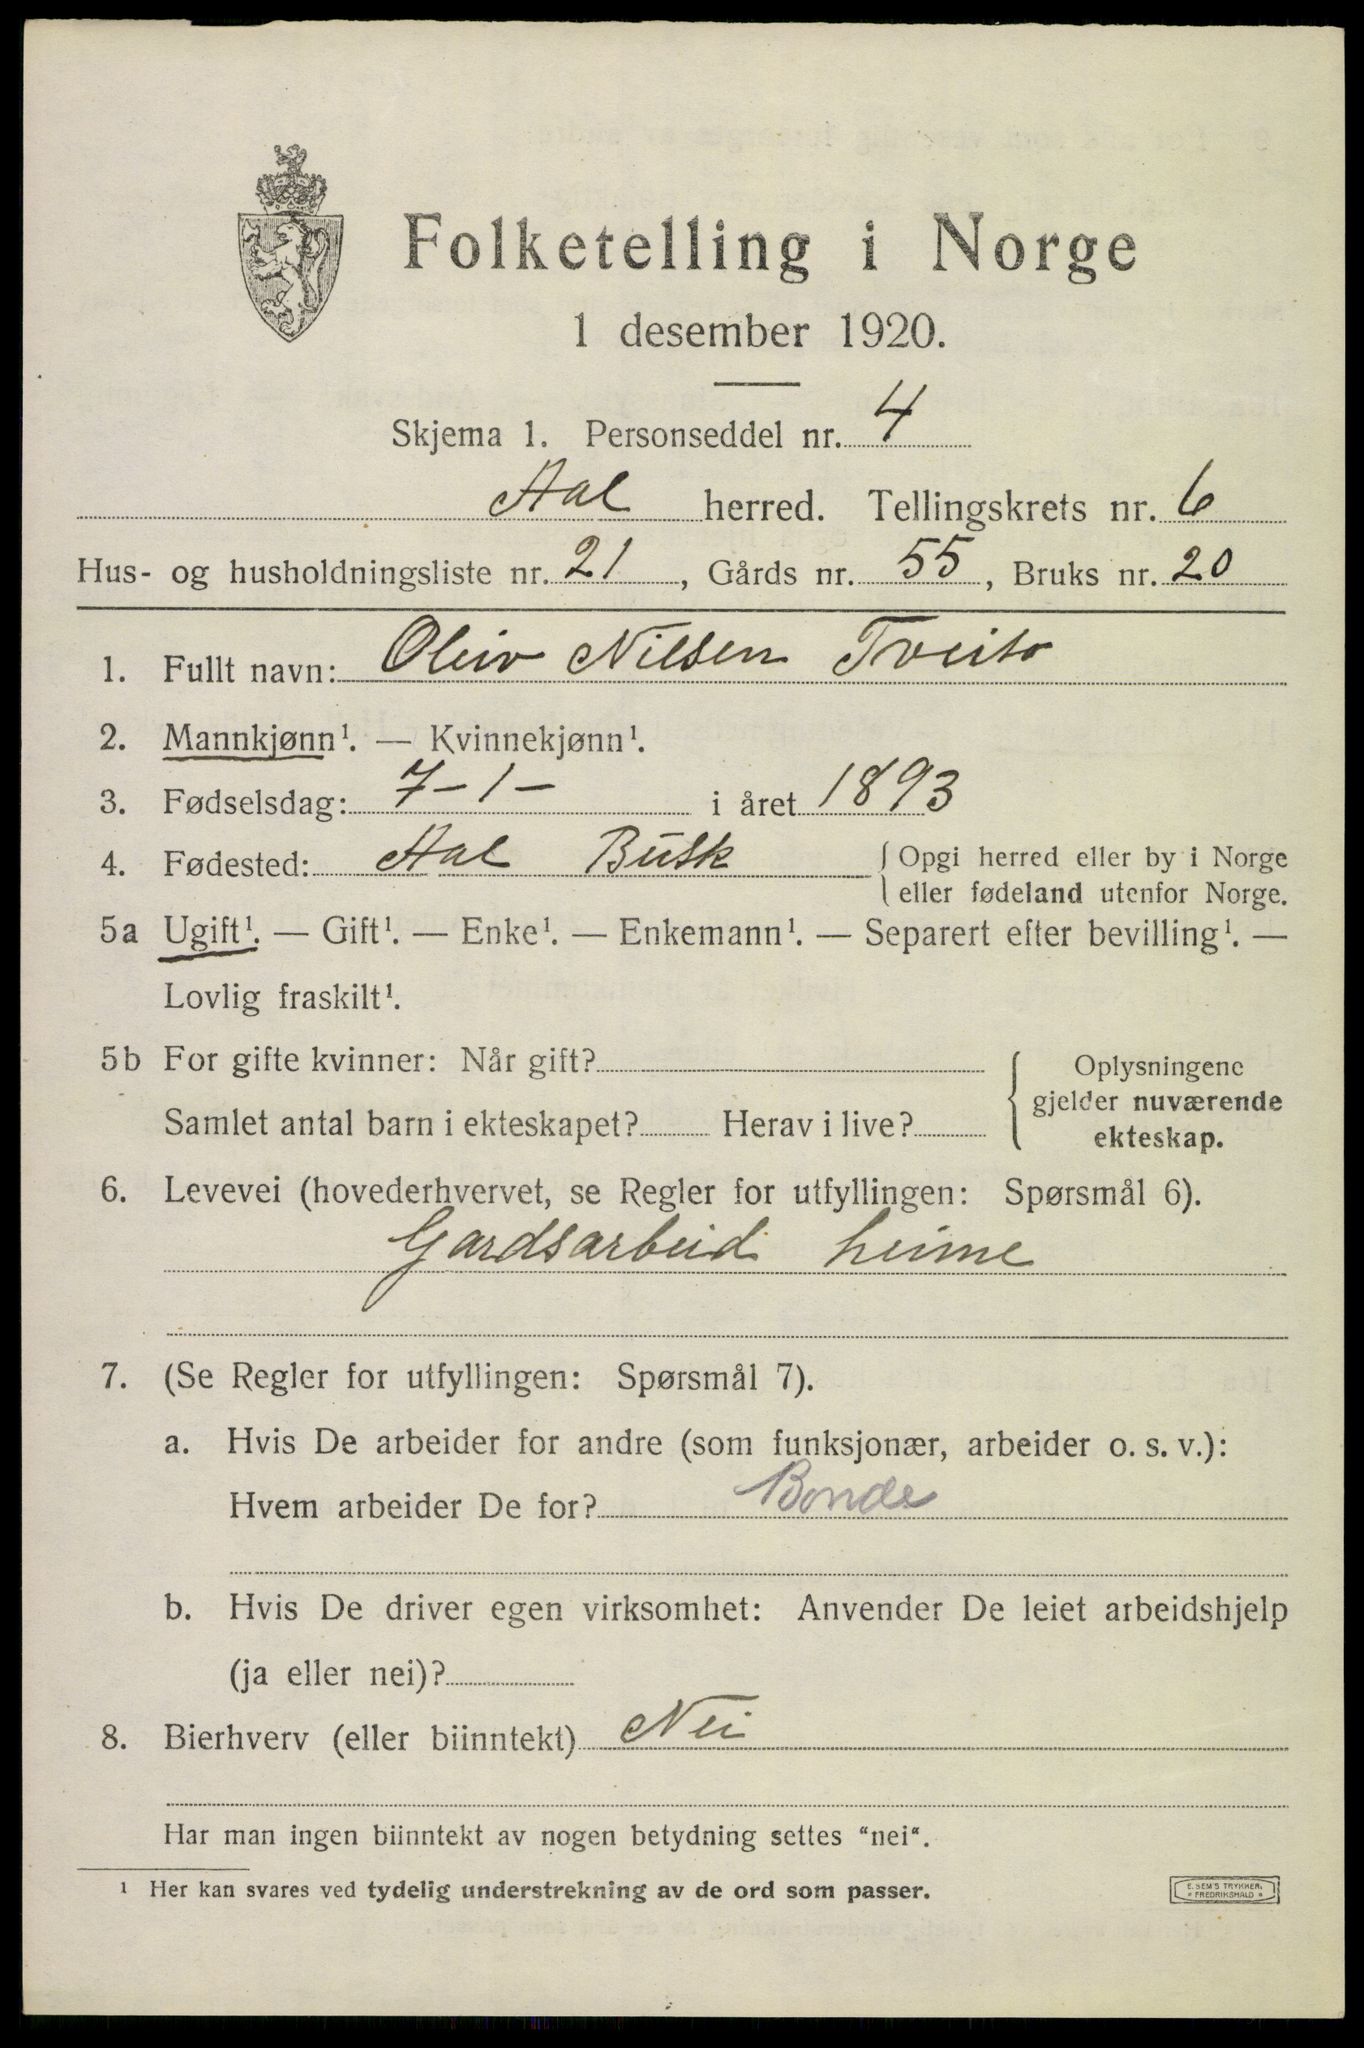 Folketelling i Norge
1 desember 1920.
Skjema 1. Personseddel nr. 4
Aal herred. Tellingskrets nr. 6
Hus- og husholdningsliste nr. 21, Gårds nr. 55, Bruks nr. 20
1. Fullt navn: Oleiv Nilsen Tveito
2. Mannkjønn¹. — Kvinnekjønn¹.
3. Fødselsdag: 7-1- i året 1893
4. Fødested: Aal Busk { Opgi herred eller by i Norge
eller fødeland utenfor Norge.
5a Ugift¹. — Gift¹. — Enke¹. — Enkemann¹. — Separert efter bevilling¹. —
Lovlig fraskilt¹.
5b For gifte kvinner: Når gift?
Samlet antal barn i ekteskapet? Herav i live?
{ Oplysningene
gjelder nuværende
ekteskap.
6. Levevei (hovederhvervet, se Regler for utfyllingen: Spørsmål 6).
Gardsarbeid heime
7. (Se Regler for utfyllingen: Spørsmål 7).
a. Hvis De arbeider for andre (som funksjonær, arbeider o. s. v.):
Hvem arbeider De for? Bonde
b. Hvis De driver egen virksomhet: Anvender De leiet arbeidshjelp
(ja eller nei)?
8. Bierhverv (eller biinntekt) Nei
Har man ingen biinntekt av nogen betydning settes "nei".
¹ Her kan svares ved tydelig understrekning av de ord som passer.
E. SEM'S TRYKKERI,
* FREDRIKSHALD *